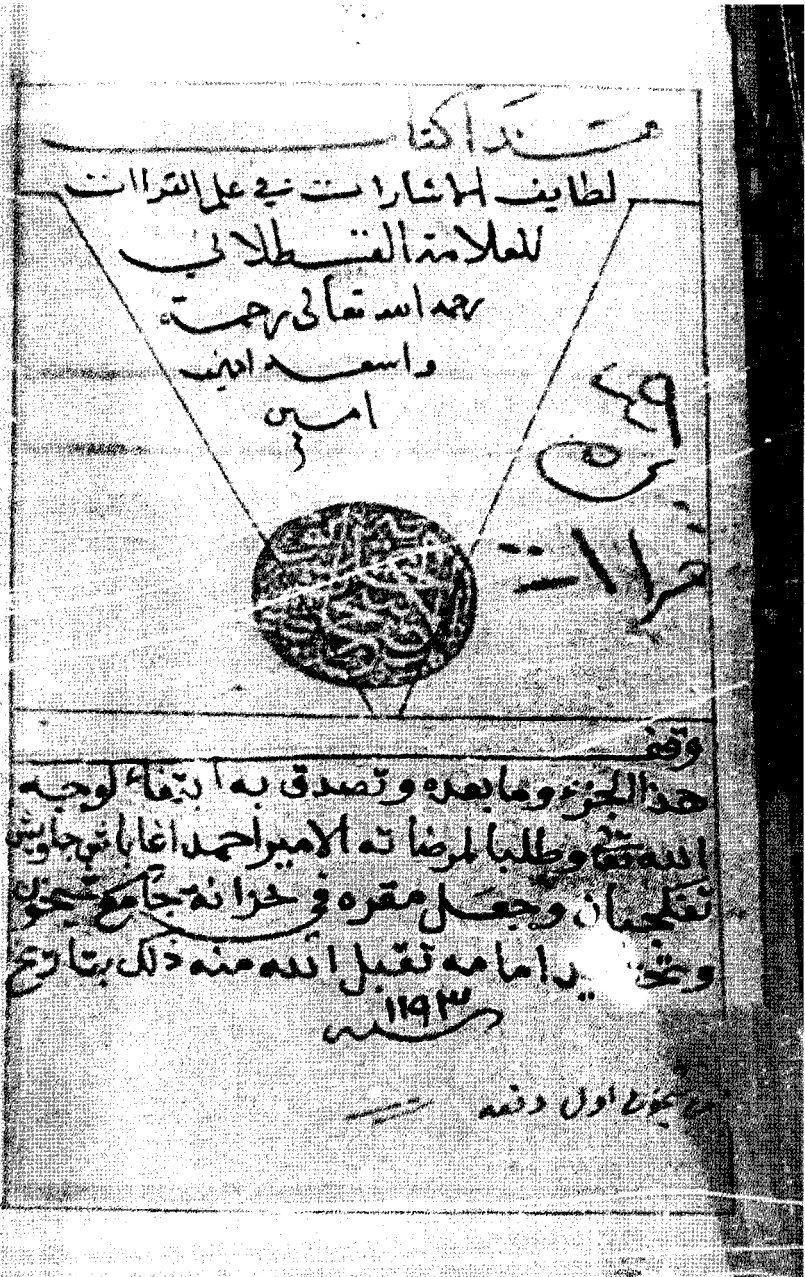 هذا كتاب
لطايف الاشارات في علم القراات
للعلامة القسطلاني
رحمه الله تعالى رحمة
واسعه امين
امين
٤٩
قراات
وقف
هذا الجزء وما بعده وتصدق به ابتغاء لوجه
الله تعا وطلبا لمرضاته الامير احمد اغا باش جاويش
تفكجيان وجعل مقره في خزانة جامع شيخون
وتحت يد امامه تقبل الله منه ذلك بتاريخ
سنه ١١٩٣
شيخون اول دفعه